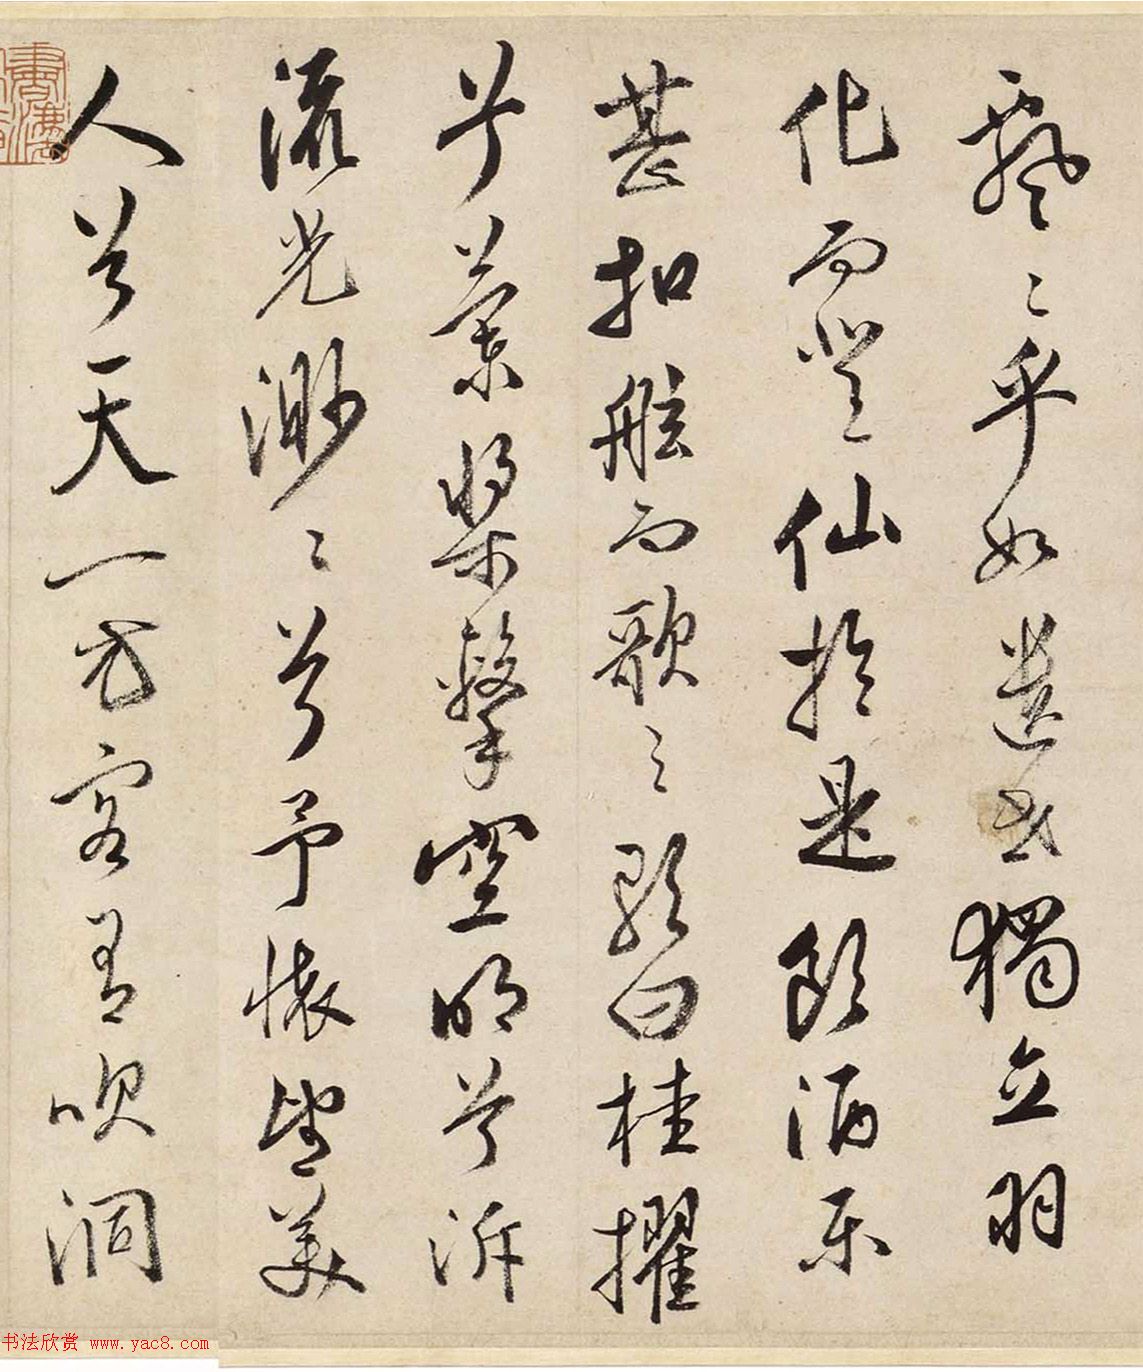 飄〻乎如遺世獨立羽
化而登仙於是飲酒樂
甚扣舷而歌之歌曰桂擢
兮蘭槳擊空明兮泝
流光渺〻兮予懷望美
人兮天一方客有吹洞
書法欣赏 www.yac8.com